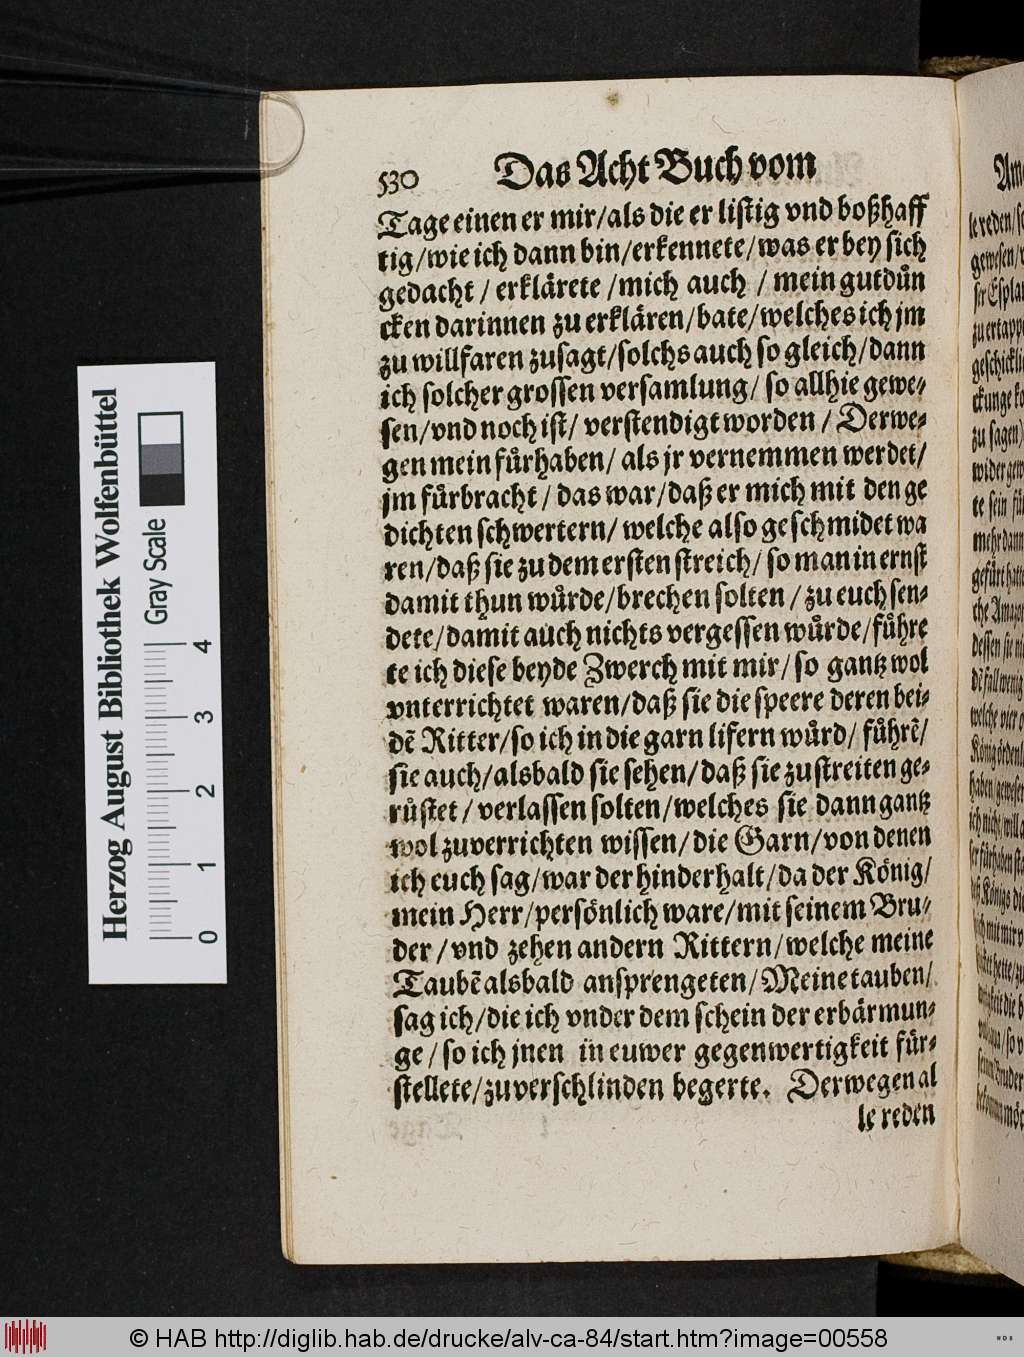 530 Das Acht Buch vom
Tage einen er mir/als die er listig vnd boßhaff
tig/wie ich dann bin/erkennete/was er bey sich
gedacht / erklärete /mich auch / mein gutduͤn
cken darinnen zu erklären/bate/welches ich jm
zu willfaren zusagt/solchs auch so gleich/dann
ich solcher grossen versamlung/ so allhie gewe-
sen/vnd noch ist/ verstendigt worden / Derwe-
gen mein fuͤrhaben/ als jr vernemmen werdet/
jm fuͤrbracht / das war/daß er mich mit den ge
dichten schwertern/ welche also geschmidet wa
ren/daß sie zu dem ersten streich/ so man in ernst
damit thun wuͤrde/brechen solten / zu euch sen-
dete/damit auch nichts vergessen wuͤrde/fuͤhre
te ich diese beyde Zwerch mit mir/ so gantz wol
vnterrichtet waren/daß sie die speere deren bei-
dẽ Ritter/so ich in die garn lifern wuͤrd/ fuͤhrẽ/
sie auch/alsbald sie sehen/daß sie zu streiten ge-
ruͤstet / verlassen solten/welches sie dann gantz
wol zuverrichten wissen/die Garn/von denen
ich euch sag/war der hinderhalt/da der König/
mein Herr/persönlich ware/mit seinem Bru-
der /vnd zehen andern Rittern/welche meine
Taubẽ alsbald ansprengeten/Meine tauben/
sag ich/die ich vnder dem schein der erbärmun-
ge / so ich jnen in euwer gegenwertigkeit fuͤr-
stellete/zuverschlinden begerte. Derwegen al
le reden
Herzog August Bibliothek Wolfenbüttel
Gray Scale
0 1 2 3 4
© HAB http://diglib.hab.de/drucke/alv-ca-84/start.htm?image=00558